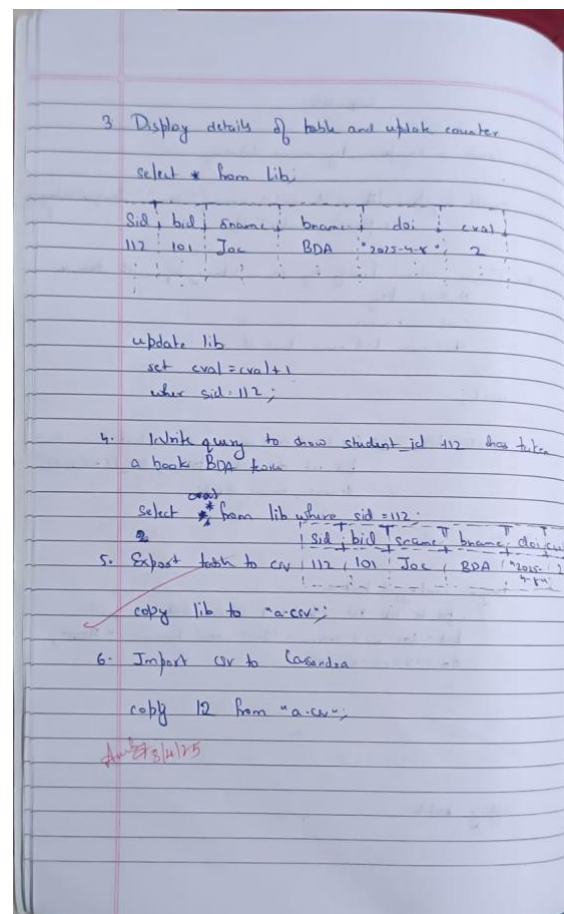 3 Display details of table and update counter
select * from lib;
Sid bid sname bname doi cval
112 101 Joe BDA "2025-4-8" 2
update lib
set cval = cval+1
wher sid=112;
4. Write query to show student_id 112 has taken
a book BDA
cval
select * from lib where sid =112;
2
sid bid sname bname doi
5. Export table to csv 112 101 Joe BDA "2025-4-8" 2
copy lib to "a.csv";
6. Import csv to Casandra
copy 12 from "a.csv";